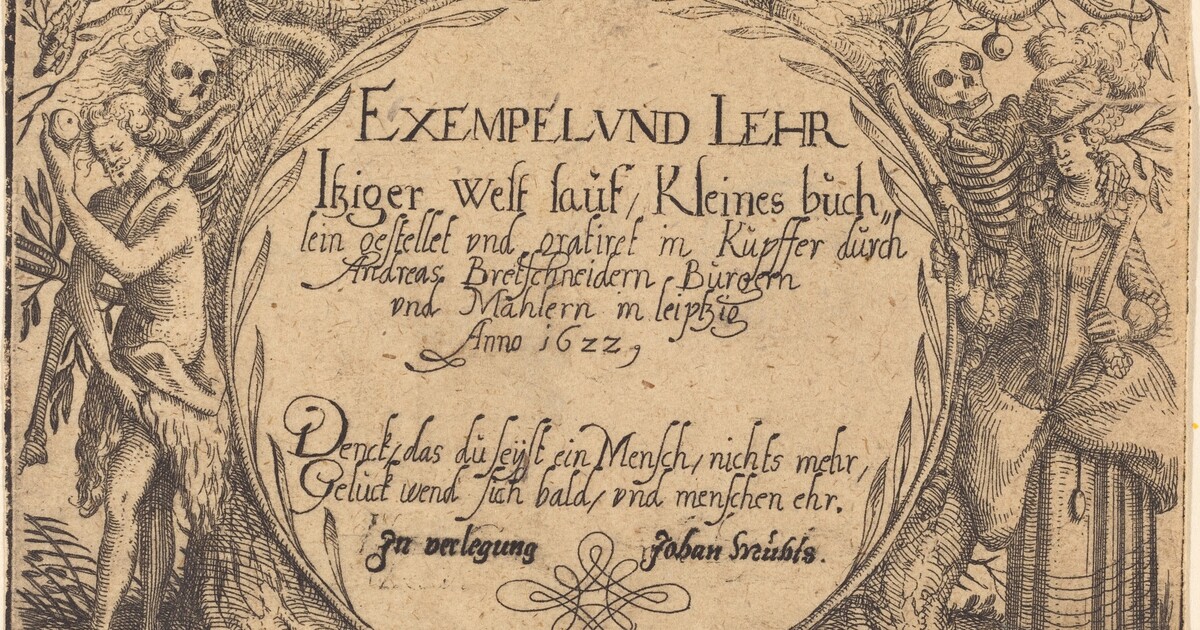 EXEMPEL VND LEHR
Itziger welt lauf, Kleines buch„
lein gestellet vnd gratiret in Kupffer durch
Andreas Bretschneidern Burgern
vnd Mahlern in leiptzig
Anno 1622,
Denck, das du seÿst ein Mensch, nichts mehr,
Gelück wend sich bald, vnd menschen ehr.
In verlegung Johan